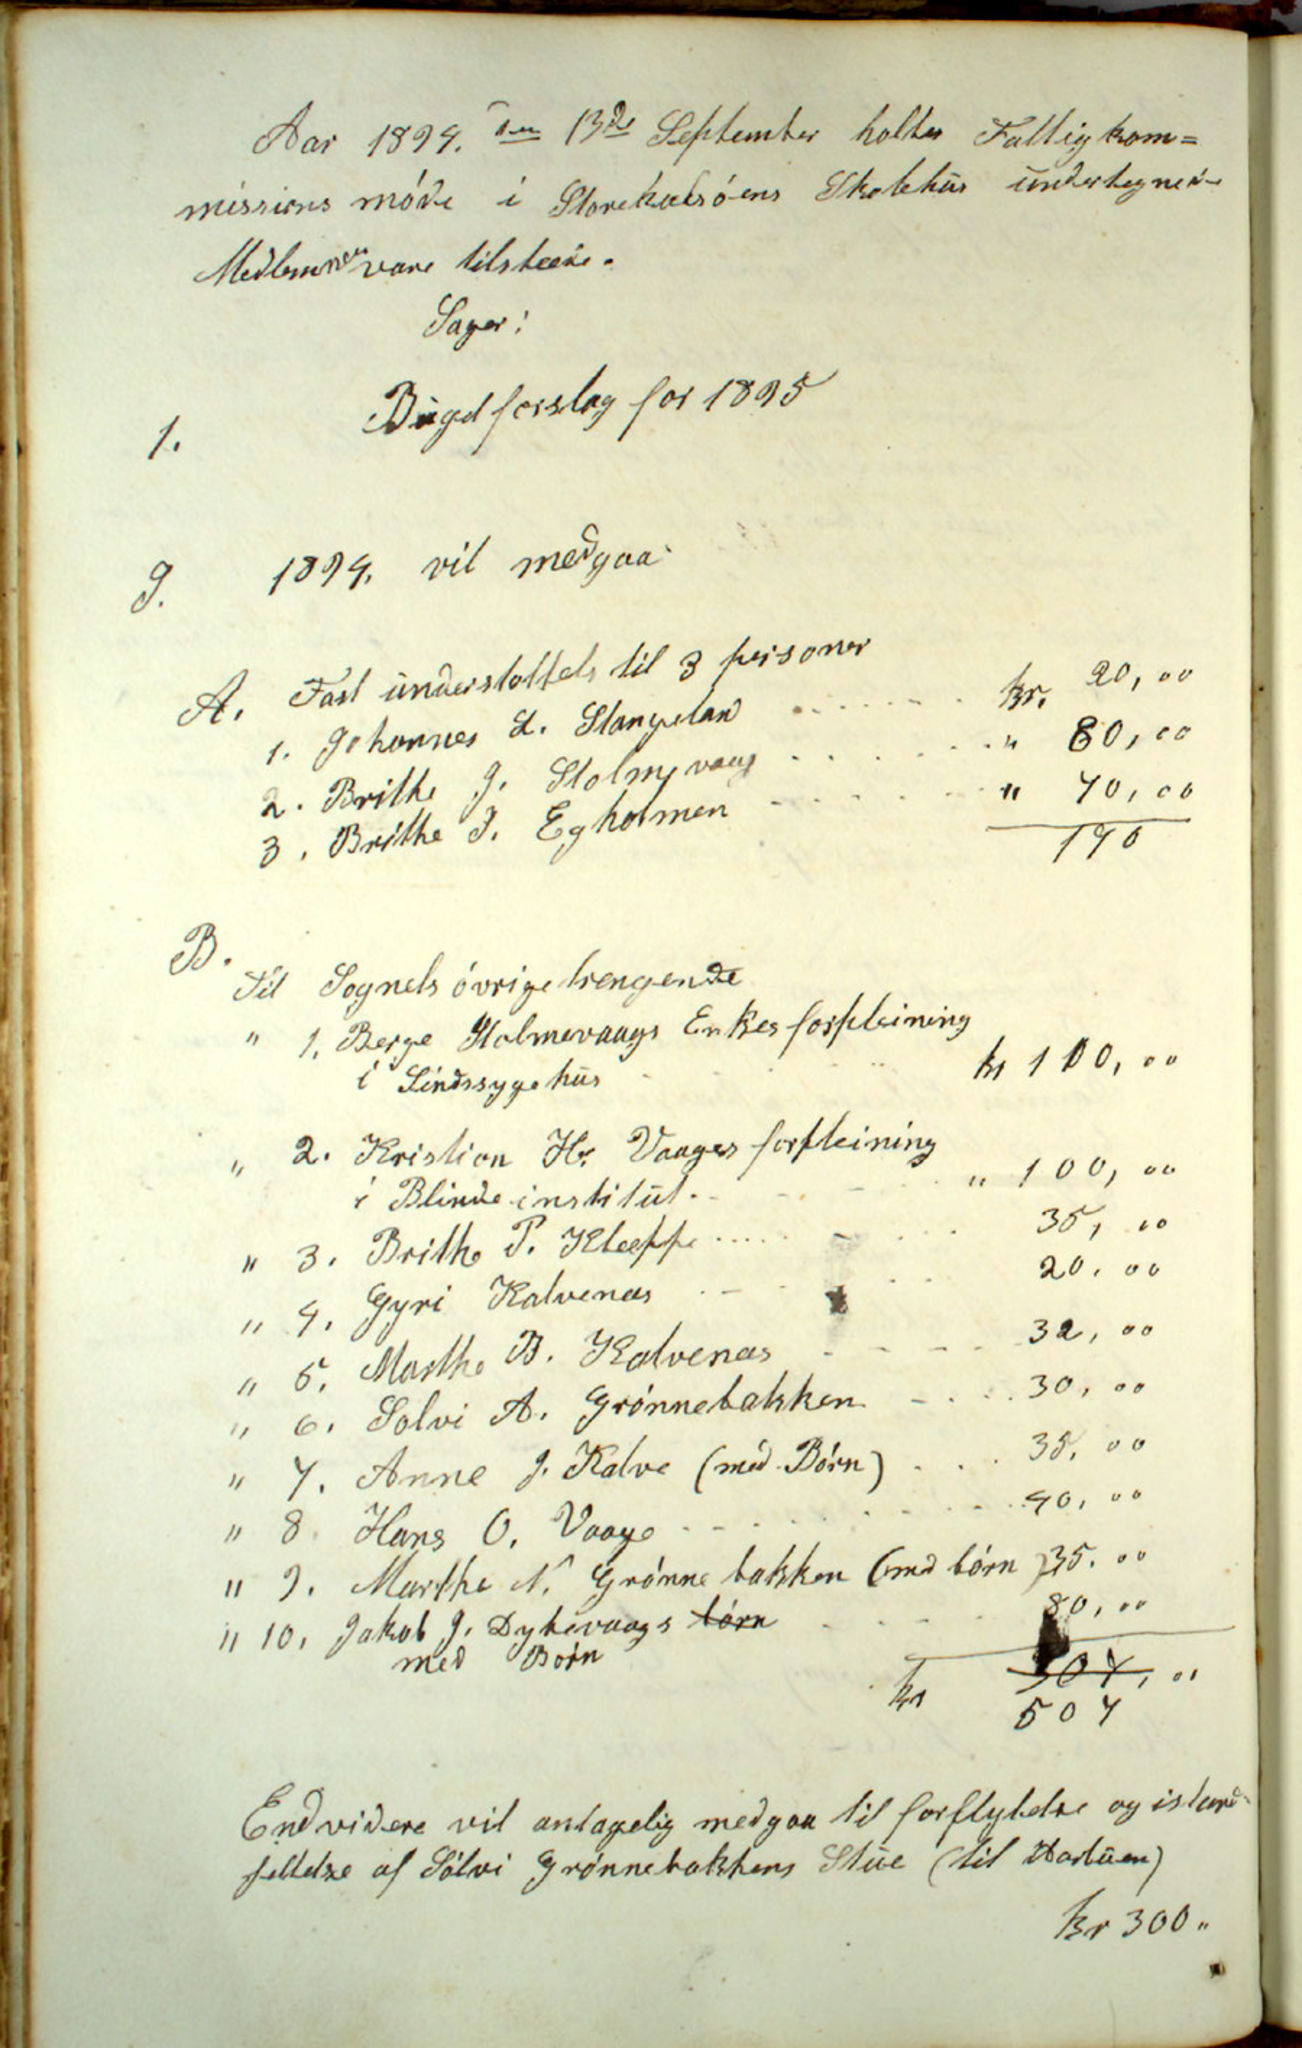 Aar 1894. den 13de September holtes Fattigkom=
missions móde i Storekalsóens Skolehus undertegnede
Medlemmer vare tilstæde.
Sager:
1. Budgetforslag for 1895
I 1894. vil medgaa
A. Fast understøttels til 3 personer
1. Johannes L. Stangeland ....... kr. 20,00
2. Brithe J. Stolmevaag ....... " 80,00
3. Brithe I. Egholmen ....... " 70,00
170
B.
Til Sognets óvrige trengende
" 1. Berge Stolmevaags Enkes forpleining
i Sindssygehus kr 100,00
" 2. Kristian H. Vaages forpleining
i Blindeinstitut. " 100,00
" 3. Brithe P. Kleppe ..... 35,00
" 4. Gyri Kalvenes 20.00
" 5. Marthe B. Kalvenes 32,00
" 6. Solvi A. Grónnebakken 30,00
" 7. Anne J. Kalve (med Bórn) ... 35,00
" 8. Hans O. Vaage 40,00
" 9. Marthe N. Grónnebakken (med bórn) 35.00
" 10. Jakob J. Dybevaags bórn 80,00
med Bórn
kr 307,00
507
Endvidere vil antagelig medgaa til forflytelse og istand-
settelse af Sólvi Grónnebakkens Stue (til Kartuen)
kr 300"